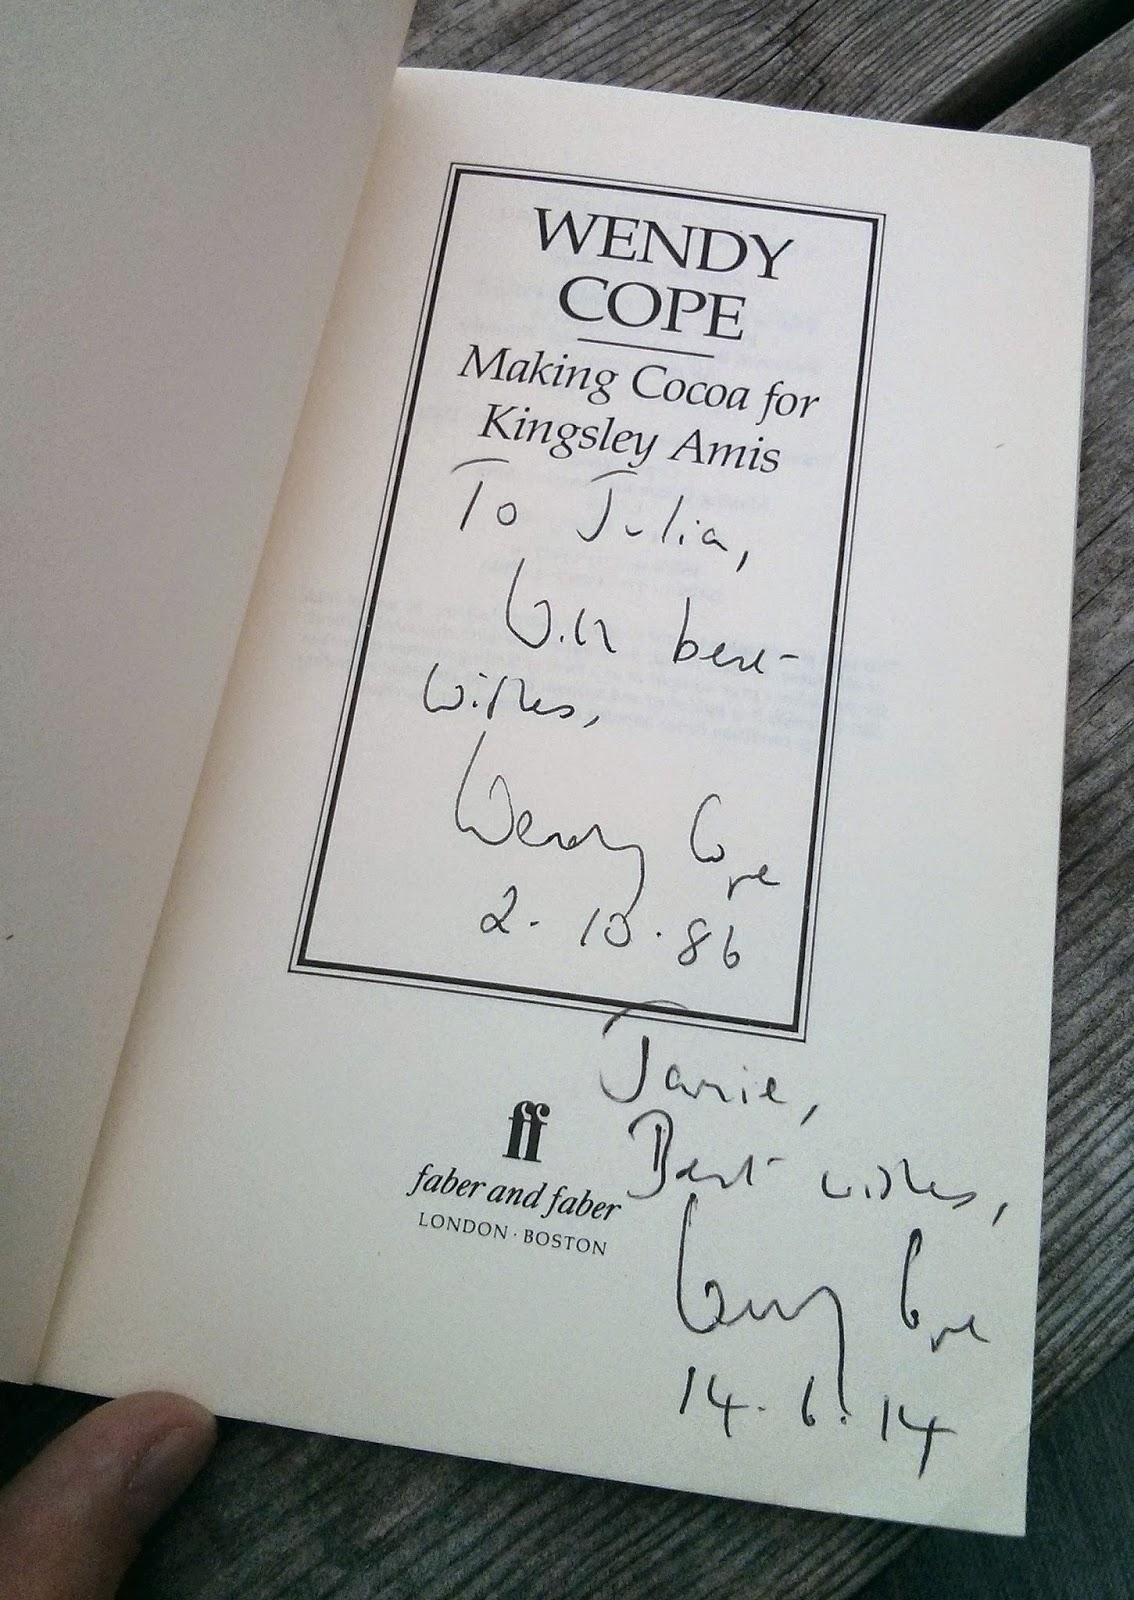 WENDY
COPE
Making Cocoa for
Kingsley Amis
To Julia,
With best
wishes,
Wendy Cope
2.10.86
Janie,
Best wishes,
Wendy Cope
14.6.14
ff
faber and faber
LONDON · BOSTON